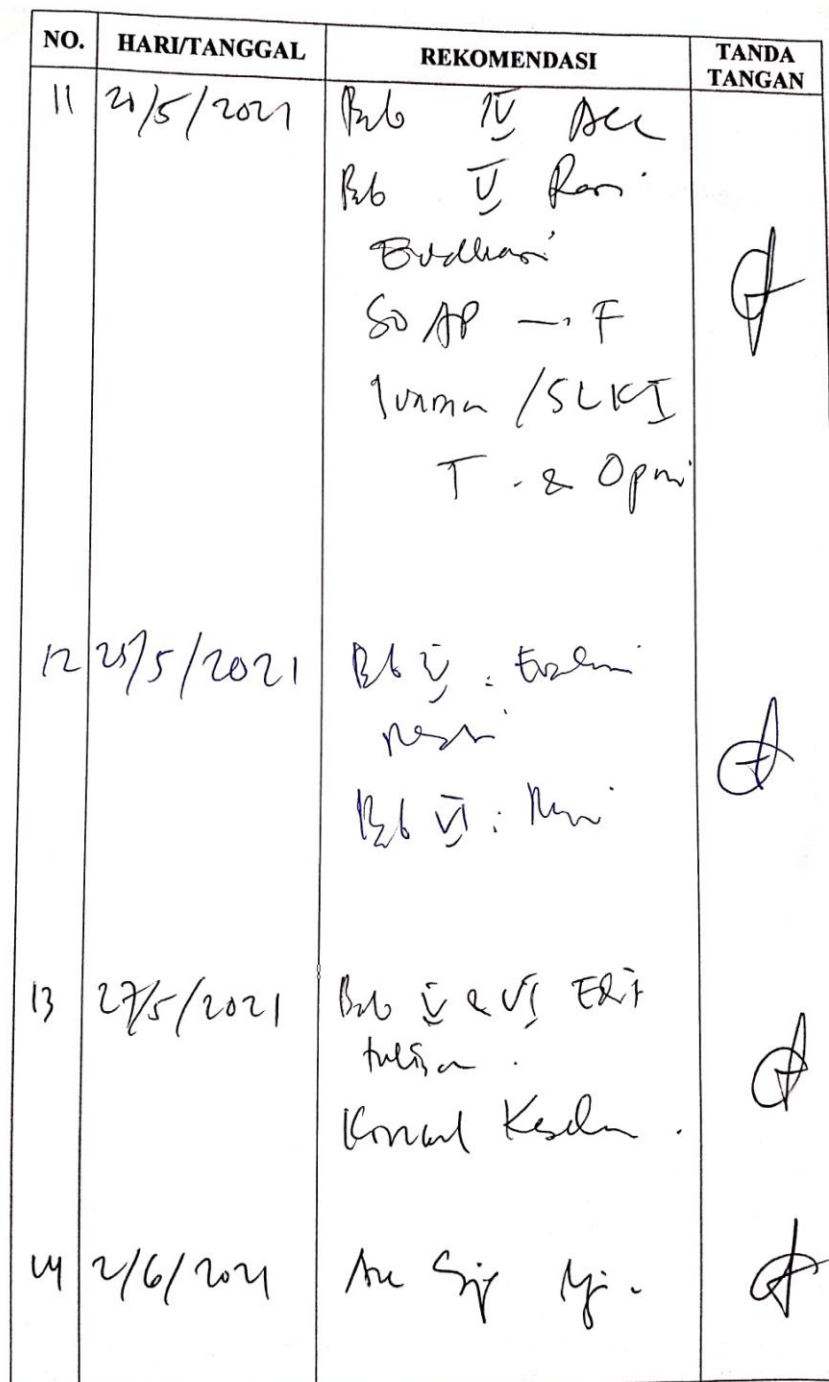 NO. HARI/TANGGAL REKOMENDASI TANDA TANGAN
11 21/5/2021 Bab IV Acc
Bab V Revisi
Evaluasi
SOAP → F
/SLKI
T. & Opini
12 25/5/2021 Bab V : Evaluasi
Revisi
Bab VI : Revisi
13 27/5/2021 Bab V & VI Edit
tulisan.
Konsul Keseluruhan.
14 2/6/2021 Acc Siap Uji.